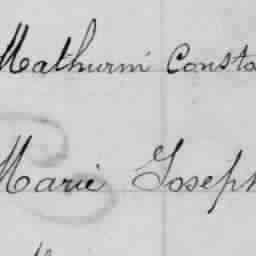 Mathurin Consta
Marie Joseph